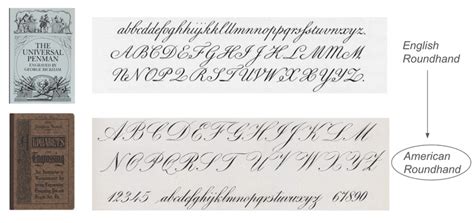 THE
UNIVERSAL
PENMAN
ENGRAVED BY
GEORGE BICKHAM
abbcddefghhijkkllmnopqrstuvwxyz.
ABCDEFGHIJKLMM
NNOPQRSTUVWXYYZ.
English
Roundhand
ALPHABETS
Engrossing
ABCDEFGHIJKLM
NOPQRSTUVWXYZ
12345 abcdefghijklmnopqrstuvwxyz 67890
American
Roundhand